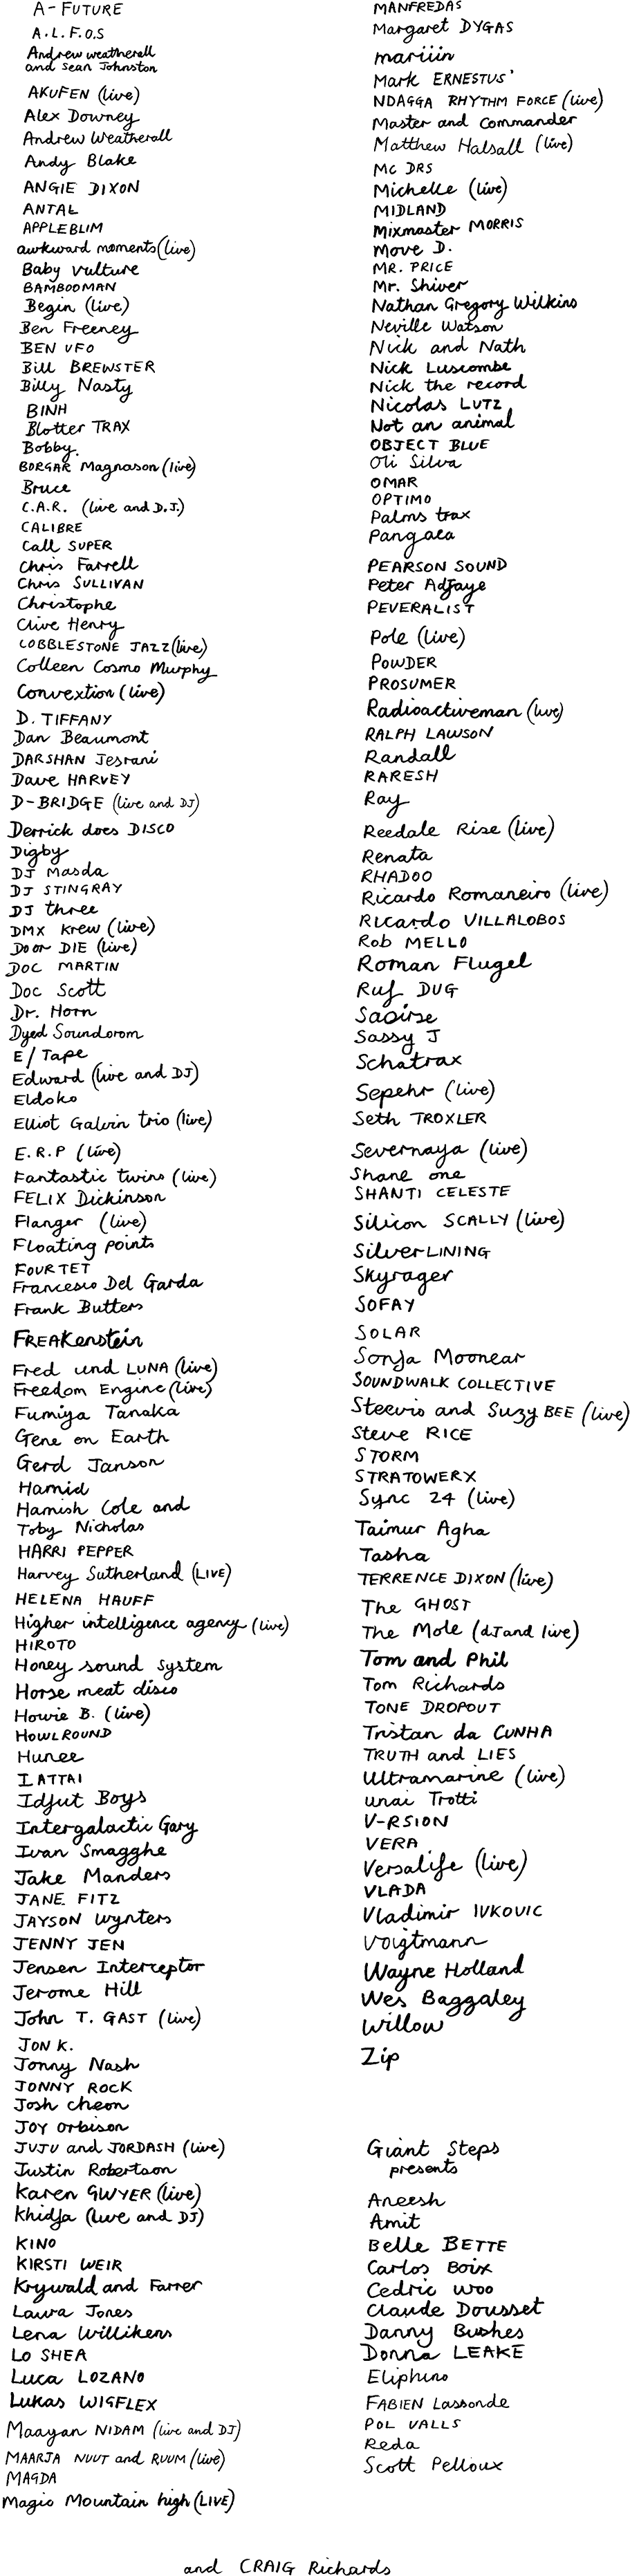 A-FUTURE
A.L.F.O.S
Andrew weatherall
and sean Johnston
AKUFEN (live)
Alex Downey
Andrew Weatherall
Andy Blake
ANGIE DIXON
ANTAL
APPLEBLIM
awkward moments (live)
Baby vulture
BAMBOOMAN
Begin (live)
Ben Freeney
BEN UFO
Bill BREWSTER
Billy Nasty
BINH
Blotter TRAX
Bobby.
BORGAR Magnason (live)
Bruce
C.A.R. (live and D.J.)
CALIBRE
Call SUPER
Chris Farrell
Chris SULLIVAN
Christophe
Clive Henry
COBBLESTONE JAZZ (live)
Colleen Cosmo Murphy
Convextion (live)
D. TIFFANY
Dan Beaumont
DARSHAN Jesrani
Dave HARVEY
D-BRIDGE (live and DJ)
Derrick does DISCO
Digby
DJ Masda
DJ STINGRAY
DJ three
DMX Krew (live)
Do or DIE (live)
DOC MARTIN
Doc Scott
Dr. Horn
Dyed Soundorom
E/Tape
Edward (live and DJ)
Eldoko
Elliot Galvin trio (live)
E.R.P (live)
Fantastic twins (live)
FELIX Dickinson
Flanger (live)
Floating points
FOUR TET
Francesco Del Garda
Frank Butters
FREAKenstein
Fred und LUNA (live)
Freedom Engine (live)
Fumiya Tanaka
Gene on Earth
Gerd Janson
Hamid
Hamish Cole and
Toby Nicholas
HARRI PEPPER
Harvey Sutherland (LIVE)
HELENA HAUFF
Higher intelligence agency (live)
HIROTO
Honey sound System
Horse meat disco
Howie B. (live)
HOWLROUND
Hunee
I LATTAI
Idjut Boys
Intergalactic Gary
Ivan Smagghe
Jake Manders
JANE FITZ
JAYSON Wynters
JENNY JEN
Jensen Interceptor
Jerome Hill
John T. GAST (live)
JON K.
Jonny Nash
JONNY ROCK
Josh cheon
JOY Orbison
JUJU and JORDASH (live)
Justin Robertson
Karen GWYER (live)
Khidja (live and DJ)
KINO
KIRSTI WEIR
Krywald and Farrer
Laura Jones
Lena Willikens
LO SHEA
Luca LOZANO
Lukas WIGFLEX
Maayan NIDAM (live and DJ)
MAARJA NUUT and RUUM (live)
MAGDA
Magic Mountain high (LIVE)
MANFREDAS
Margaret DYGAS
mariiin
Mark ERNESTUS'
NDAGGA RHYTHM FORCE (live)
Master and Commander
Matthew Halsall (live)
MC DRS
Michelle (live)
MIDLAND
Mixmaster MORRIS
Move D.
MR. PRICE
Mr. Shiver
Nathan Gregory Wilkins
Neville Watson
Nick and Nath
Nick Luscombe
Nick the record
Nicolas LUTZ
Not an animal
OBJECT BLUE
Oli Silva
OMAR
OPTIMO
Palms trax
Pangaea
PEARSON SOUND
Peter Adjaye
PEVERALIST
Pole (live)
POWDER
PROSUMER
Radioactiveman (live)
RALPH LAWSON
Randall
RARESH
Ray
Reedale Rise (live)
Renata
RHADOO
Ricardo Romaneiro (live)
Ricardo VILLALOBOS
Rob MELLO
Roman Flugel
Ruf DUG
Saoirse
Sassy J
Schatrax
Sepehr (live)
Seth TROXLER
Severnaya (live)
Shane one
SHANTI CELESTE
Silicon SCALLY (live)
SilverLINING
Skyrager
SOFAY
SOLAR
Sonja Moonear
SOUNDWALK COLLECTIVE
Steevio and Suzy BEE (live)
Steve RICE
STORM
STRATOWERX
Sync 24 (live)
Taimur Agha
Tasha
TERRENCE DIXON (live)
The GHOST
The Mole (dJ and live)
Tom and Phil
Tom Richards
TONE DROPOUT
Tristan da CUNHA
TRUTH and LIES
Ultramarine (live)
unai Trotti
V-RSION
VERA
Versalife (live)
VLADA
Vladimir IVKOVIC
Voigtmann
Wayne Holland
Wes Baggaley
Willow
Zip
Giant Steps
presents
Aneesh
Amit
Belle BETTE
Carlos Boix
Cedric woo
Claude Dousset
Danny Bushes
Donna LEAKE
Eliphino
FABIEN Lassonde
POL VALLS
Reda
Scott Pelloux
and CRAIG Richards